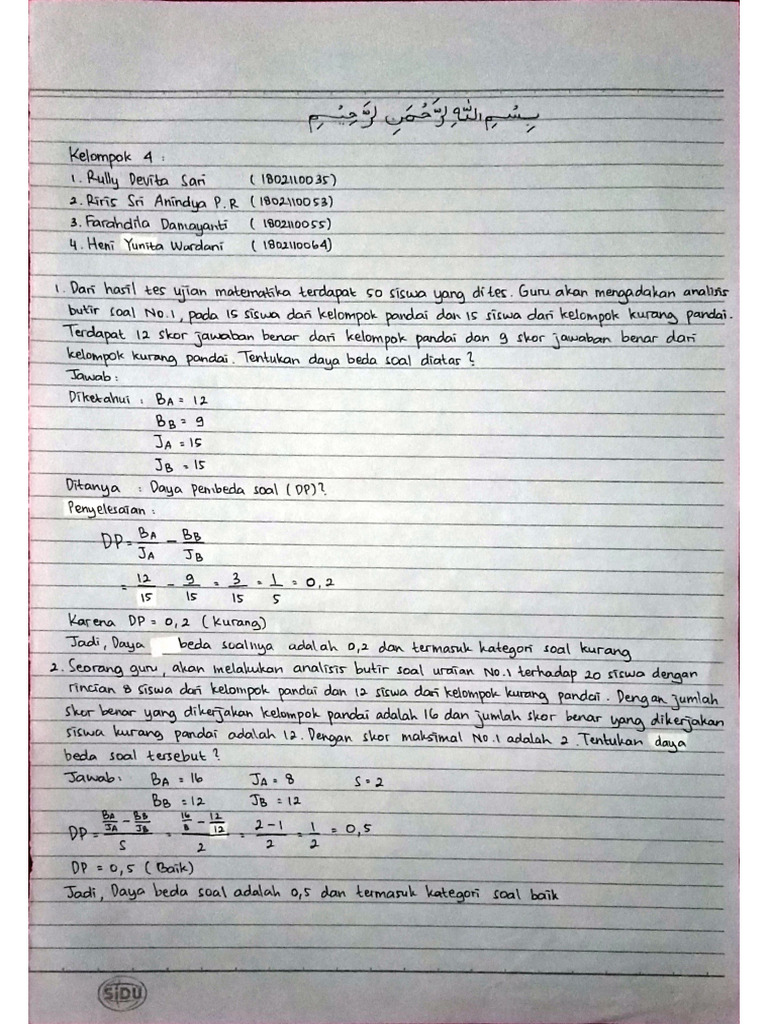 بِسْمِ اللهِ الرَّحْمَنِ الرَّحِيْمِ
Kelompok 4 :
1. Rully Devita Sari ( 1802110035)
2. Riris Sri Anindya P.R ( 1802110053)
3. Farahdila Damayanti ( 1802110055)
4. Heni Yunita Wardani ( 1802110064)
1. Dari hasil tes ujian matematika terdapat 50 siswa yang dites. Guru akan mengadakan analisis
butir soal No.1, pada 15 siswa dari kelompok pandai dan 15 siswa dari kelompok kurang pandai.
Terdapat 12 skor jawaban benar dari kelompok pandai dan 9 skor jawaban benar dari
kelompok kurang pandai. Tentukan daya beda soal diatas ?
Jawab :
Diketahui : BA = 12
BB = 9
JA = 15
JB = 15
Ditanya : Daya pembeda soal (DP)?
Penyelesaian :
DP = BA/JA - BB/JB
= 12/15 - 9/15 = 3/15 = 1/5 = 0,2
Karena DP = 0,2 ( Kurang)
Jadi, Daya beda soalnya adalah 0,2 dan termasuk kategori soal kurang
2. Seorang guru, akan melakukan analisis butir soal uraian No.1 terhadap 20 siswa dengan
rincian 8 siswa dari kelompok pandai dan 12 siswa dari kelompok kurang pandai. Dengan jumlah
skor benar yang dikerjakan kelompok pandai adalah 16 dan jumlah skor benar yang dikerjakan
siswa kurang pandai adalah 12. Dengan skor maksimal No.1 adalah 2. Tentukan daya
beda soal tersebut ?
Jawab : BA = 16 JA = 8 S = 2
BB = 12 JB = 12
DP = (BA/JA - BB/JB)/S = (16/8 - 12/12)/2 = (2-1)/2 = 1/2 = 0,5
DP = 0,5 ( Baik)
Jadi, Daya beda soal adalah 0,5 dan termasuk kategori soal baik
SiDU